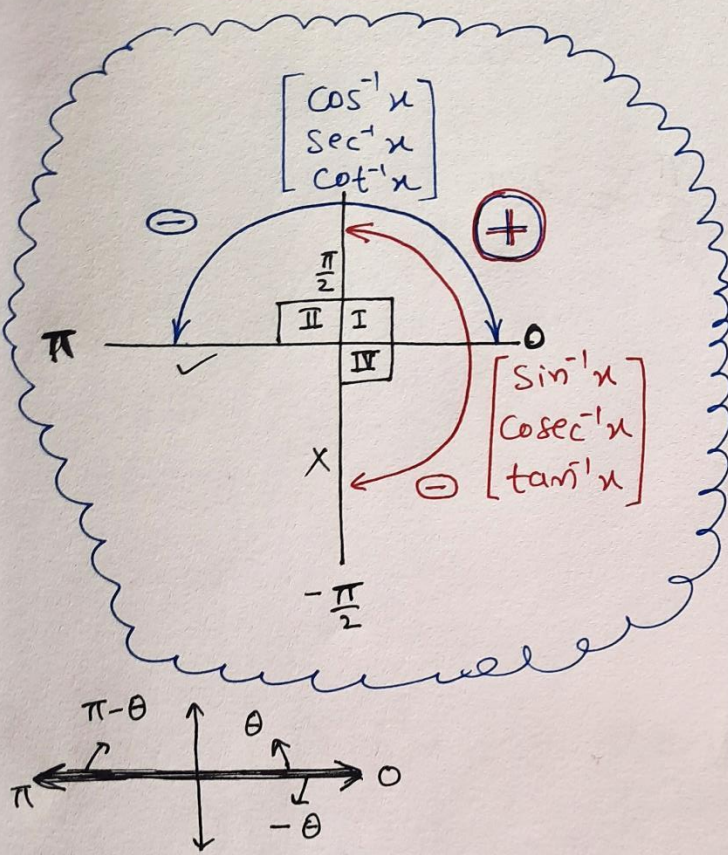 cos⁻¹x
sec⁻¹x
cot⁻¹x
⊖
+
π/2
II I
π
0
✓
IV
sin⁻¹x
cosec⁻¹x
tan⁻¹x
×
⊖
-π/2
π-θ
θ
π
0
-θ